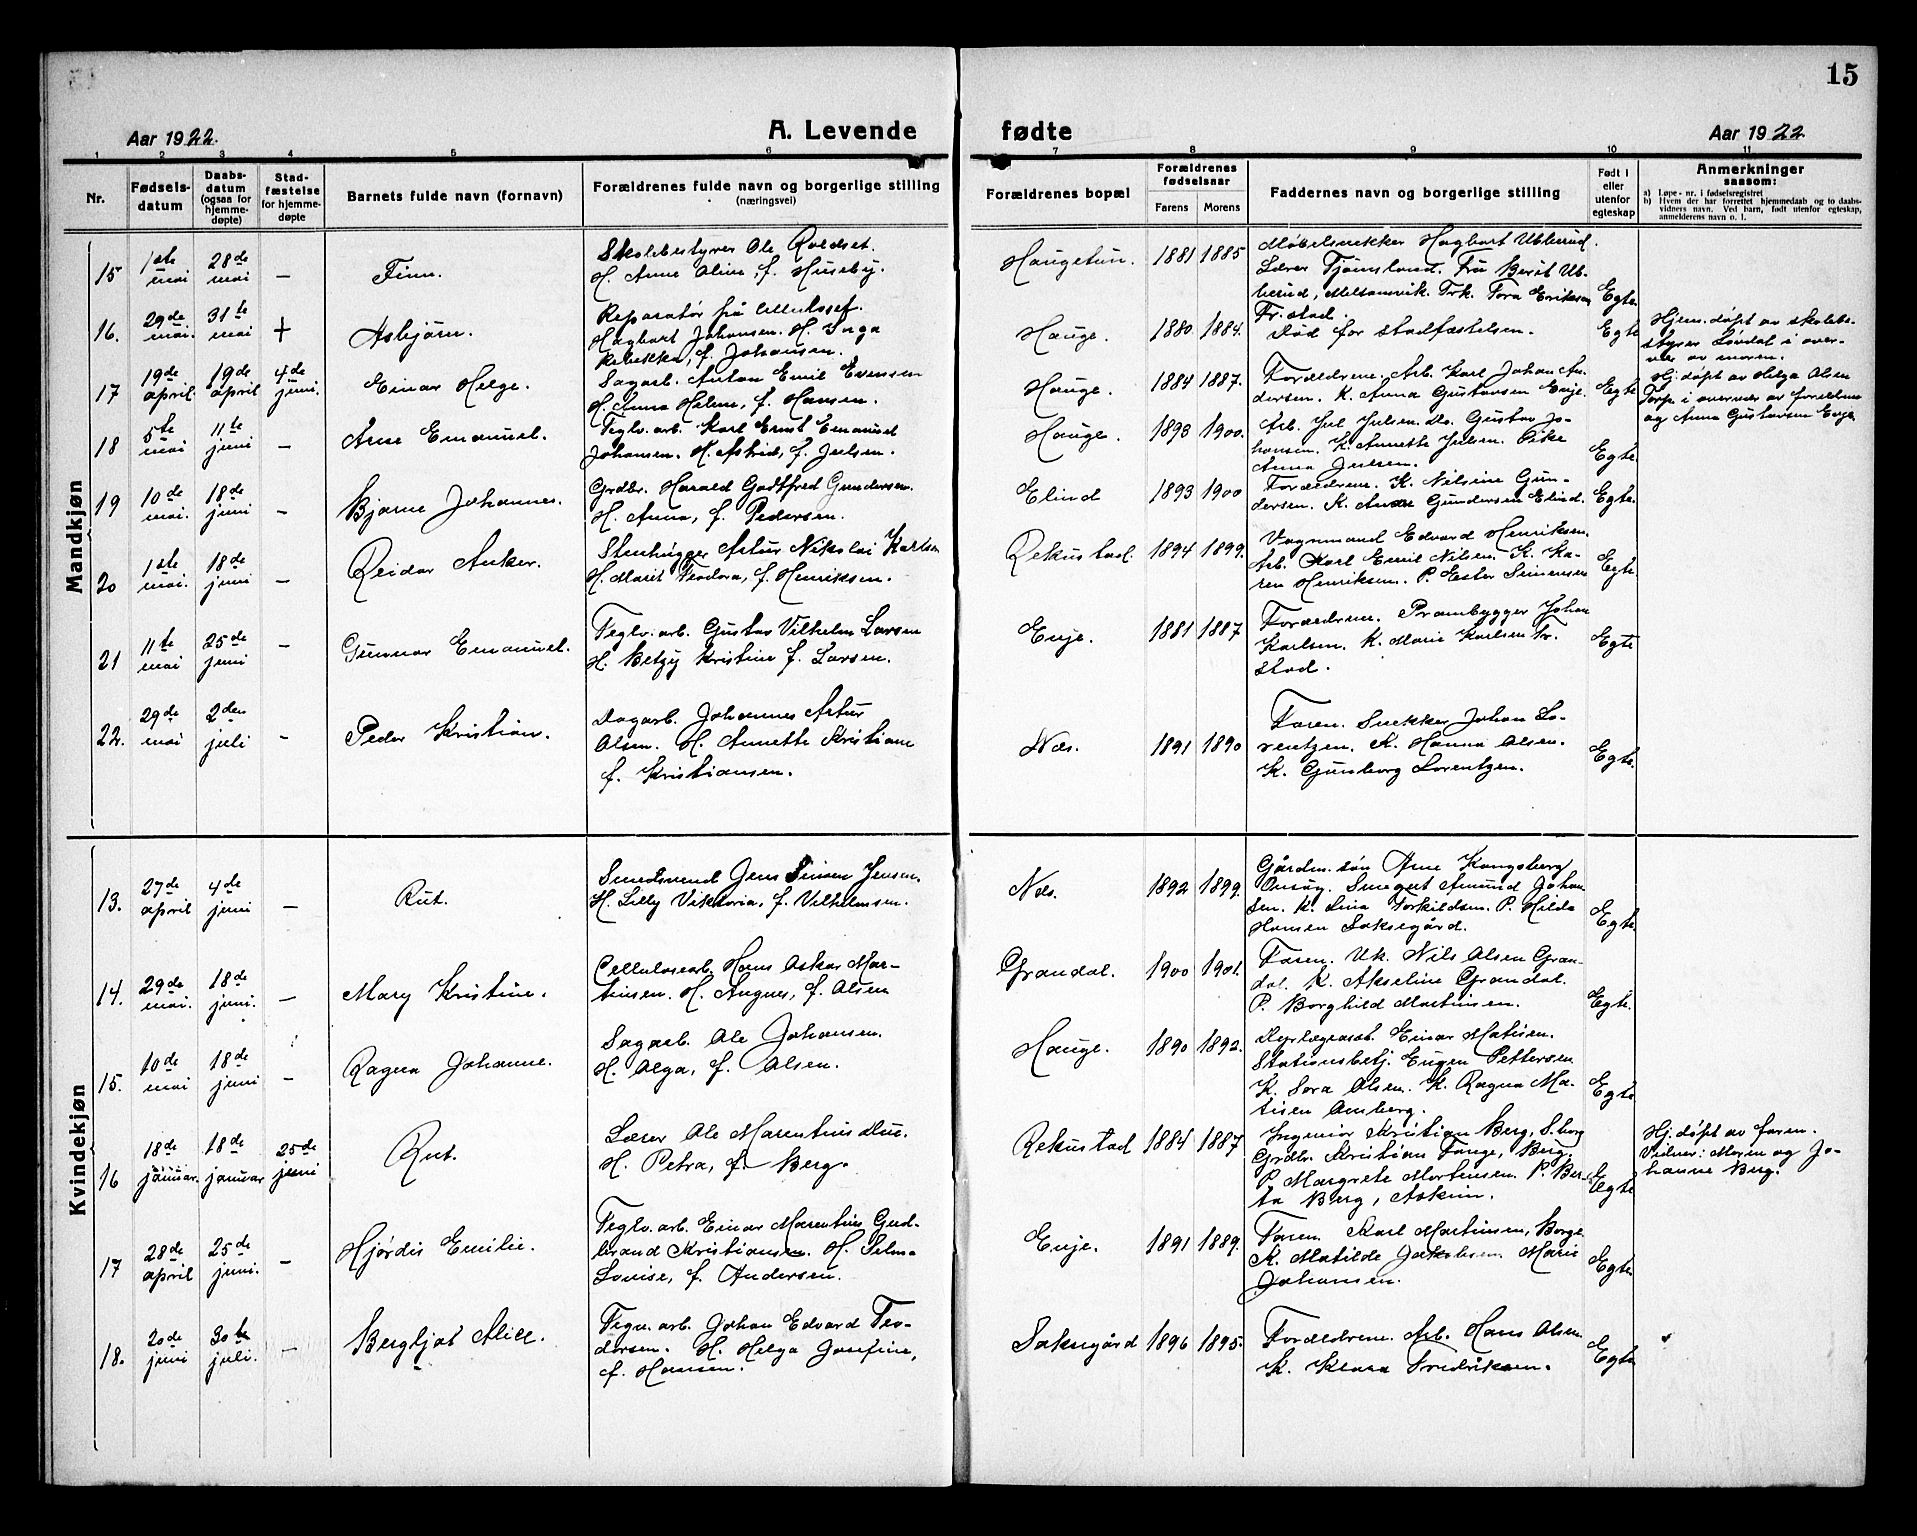 15
Aar 1922.
A. Levende
fødte
Aar 1922.
1 2 3 4 5 6 7 8 9 10 11
Nr.
Fødsels-
datum
Daabs-
datum
(ogsaa for
hjemme-
døpte)
Stad-
fæstelse
for hjemme-
døpte
Barnets fulde navn (fornavn)
Forældrenes fulde navn og borgerlige stilling
(næringsvei)
Forældrenes bopæl
Forældrenes
fødselsaar
Farens Morens
Faddernes navn og borgerlige stilling
Født i
eller
utenfor
egteskap
Anmerkninger
saasom:
a) Løpe-nr. i fødselsregistret
b) Hvem der har forrettet hjemmedaab og to daabs-
vidners navn. Ved barn, født utenfor egteskap,
anmelderens navn o. l.
Mandkjøn
15
1ste
mai
28de
mai
–
Finn.
Skolebestyrer Ole Roldset.
H. Anne Oline, f. Huseby.
Haugetun.
1881 1885
Møbelsnekker Hagbart Ubberud.
Lærer Tjømsland. Fru Berit Ub-
berud, Frk. Tora Eriksen
Fr.stad.
Egte.
16.
29de
mai.
31te
mai
+
Asbjørn.
Reparatør på
Hagbart Johansen. H. Inga
Rebekka, f. Johansen.
Hauge.
1880. 1884.
Død før stadfæstelsen.
Egte
Hjem.døpt av skolebe-
styrer Løvdal i over-
vær av moren.
17
19de
april.
19de
april
4de
juni.
Einar Helge.
Sagarb. Anton Emil Evensen
H. Anna Helene, f. Hansen.
Hauge.
1884 1887.
Forældrene. Arb. Karl Johan An-
dersen. K. Anna Gustavsen Enje.
Egte
Hj.døpt av Helga Olsen
Torp i overvær av forældrene
og Anna Gustavsen Enje.
18
5te
mai
11te
juni
–
Arne Emanuel.
Teglv.arb. Karl Ernst Emanuel
Johansen. H. Astrid, f. Julsen.
Hauge.
1893 1900.
Arb. Jul Julsen. Do. Gustav Jo-
hansen. K. Annette Julsen. Pike
Anna Julsen.
Egte.
19
10de
mai.
18de
juni
–
Bjarne Johannes.
Grdbr. Harald Godtfred Gundersen.
H. Anna, f. Pedersen.
Elind
1893 1900
Forældrene. K. Nilsine Gun-
dersen. K. Gundersen Elind.
Egte.
20
1ste
mai.
18de
juni
–
Reidar Anker.
Stenhugger Artur Nikolai Karlsen
H. Marit Teodora, f. Henriksen.
Rekustad.
1894 1899.
Vognmand Edvard Henriksen.
Arb. Karl Emil Nilsen. K. Ka-
ren Henriksen. P. Ester Simensen
Egte.
21
11te
mai
25de
juni
–
Gunnar Emanuel.
Teglv.arb. Gustav Vilhelm Larsen
H. Betzy Kristine f. Larsen.
Enje.
1881 1887
Forældrene. Prambygger Johan
Karlsen. K. Marie Karlsen Fr.
stad.
Egte
22.
29de
mai
2den
juli
–
Peder Kristian.
Dagarb. Johannes Artur
Olsen. H. Annette Kristiane
f. Kristiansen.
Næs.
1891 1890
Faren. Snekker Johan Lo-
rentzen. K. Hanna Olsen.
K. Gunborg Lorentzen.
Egte.
Kvindekjøn
13.
27de
april
4de
juni
–
Rut.
Smedsvend Jens Simon Jensen.
H. Lilly Viktoria, f. Vilhelmsen.
Næs.
1892 1899.
Gårdm. søn Arne Kongsberg
Onsøy. Smegut Amund Johan-
sen. K. Lina Torkildsen. P. Hilda
Hansen Saksegård.
Egte.
14.
29de
mai.
18de
juni.
–
Mary Kristine.
Cellulosearb. Hans Oskar Mar-
tinsen. H. Angnes, f. Olsen
Grandal.
1900 1901.
Faren. Uk. Nils Olsen Gran-
dal. K. Akseline Grandal.
P. Borghild Martinsen.
Egte.
15.
10de
mai
18de
juni
–
Ragna Johanne.
Sagarb. Ole Johansen.
H. Olga, f. Olsen.
Hauge.
1890 1892.
Einar Matisen.
Stationsbetj. Eugen Pettersen
K. Sora Olsen. K. Ragna Ma-
tisen Amberg.
Egte
16
18de
januar.
18de
januar
25de
juni
Rut.
Lærer Ole Marentius Due.
H. Petra, f. Berg.
Rekustad
1884 1887
Ingeniør Kristian Berg, S.borg
Grdbr. Kristian Tange, Berg.
P. Margrete Mortensen. P. Ber-
ta Berg, Askim.
Egte
Hj.døpt av faren.
Vidner: Moren og Jo-
hanne Berg.
17
28de
april
25de
juni.
–
Hjørdis Emilie.
Teglv.arb. Einar Marentius Gud-
brand Kristiansen. H. Selma
Lovise, f. Andersen.
Enje.
1891 1889.
Faren. Karl Martinsen, Borge
K. Matilde Jakobsen. Marie
Johansen.
Egte.
18.
20de
juni
30te
juli.
–
Bergljot Alice.
Tegv. arb. Johan Edvard Teo-
dorsen. H. Helga Josefine,
f. Hansen.
Saksegård
1896 1895.
Forældrene. Arb. Hans Olsen
K. Klara Fredriksen.
Egte